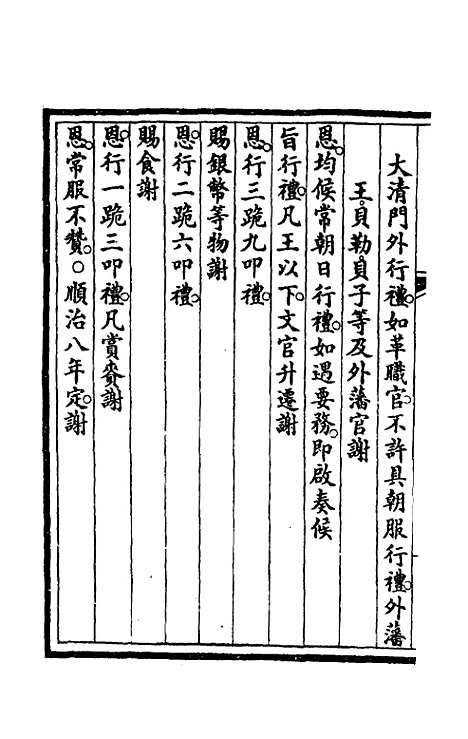 大清門外行禮。如革職官。不許具朝服行禮。外藩
王。貝勒。貝子等及外藩官謝
恩。均候常朝日行禮。如遇要務。即啟奏候
旨行禮。凡王以下。文官升遷謝
恩。行三跪九叩禮。
賜銀幣等物謝
恩。行二跪六叩禮。
賜食謝
恩。行一跪三叩禮。凡賞賚謝
恩。常服不贊。○順治八年定。謝